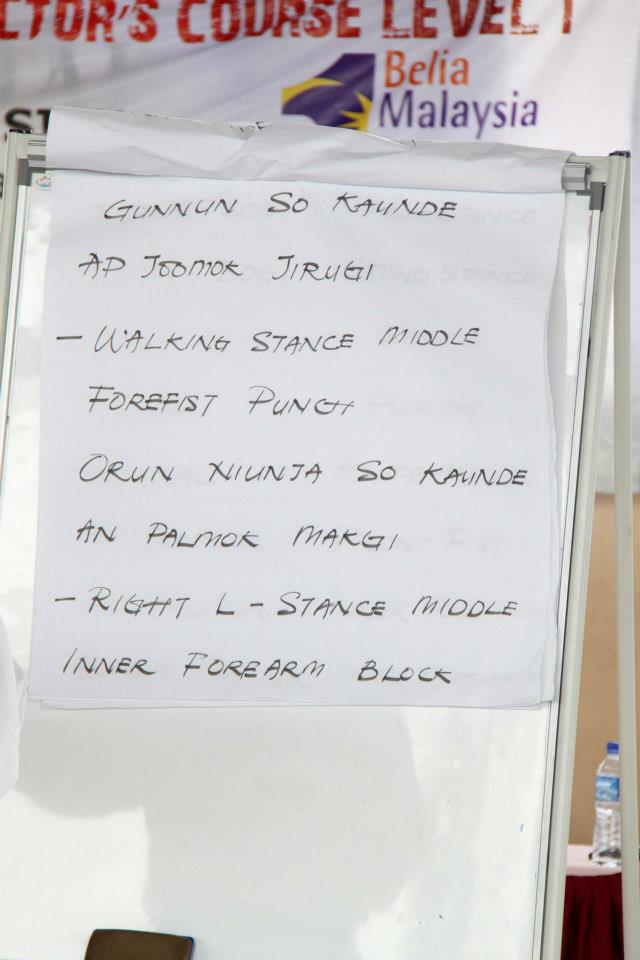 CTOR'S COURSE LEVEL 1
Belia
Malaysia
GUNNUN SO KAUNDE
AP JOOMOK JIRUGI
- WALKING STANCE MIDDLE
FOREFIST PUNCH
ORUN NIUNJA SO KAUNDE
AN PALMOK MAKGI
- RIGHT L - STANCE MIDDLE
INNER FOREARM BLOCK